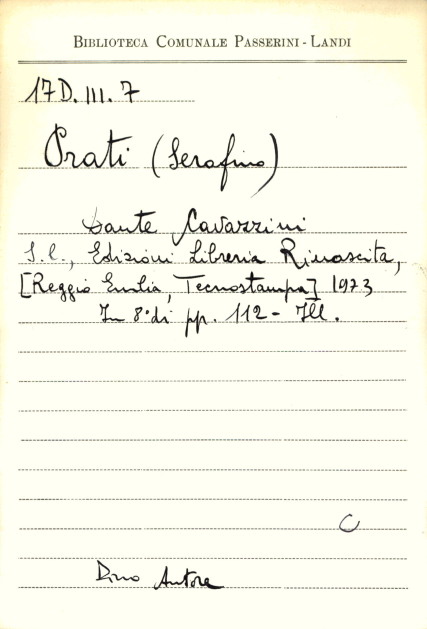 BIBLIOTECA COMUNALE PASSERINI-LANDI
17D.III.7
Prati (Serafino)
Dante Cavazzini
S.l., Edizioni Libreria Rinascita,
[Reggio Emilia, Tecnostampa] 1973
In 8° di pp. 112 - Ill.
C
Dino Autore